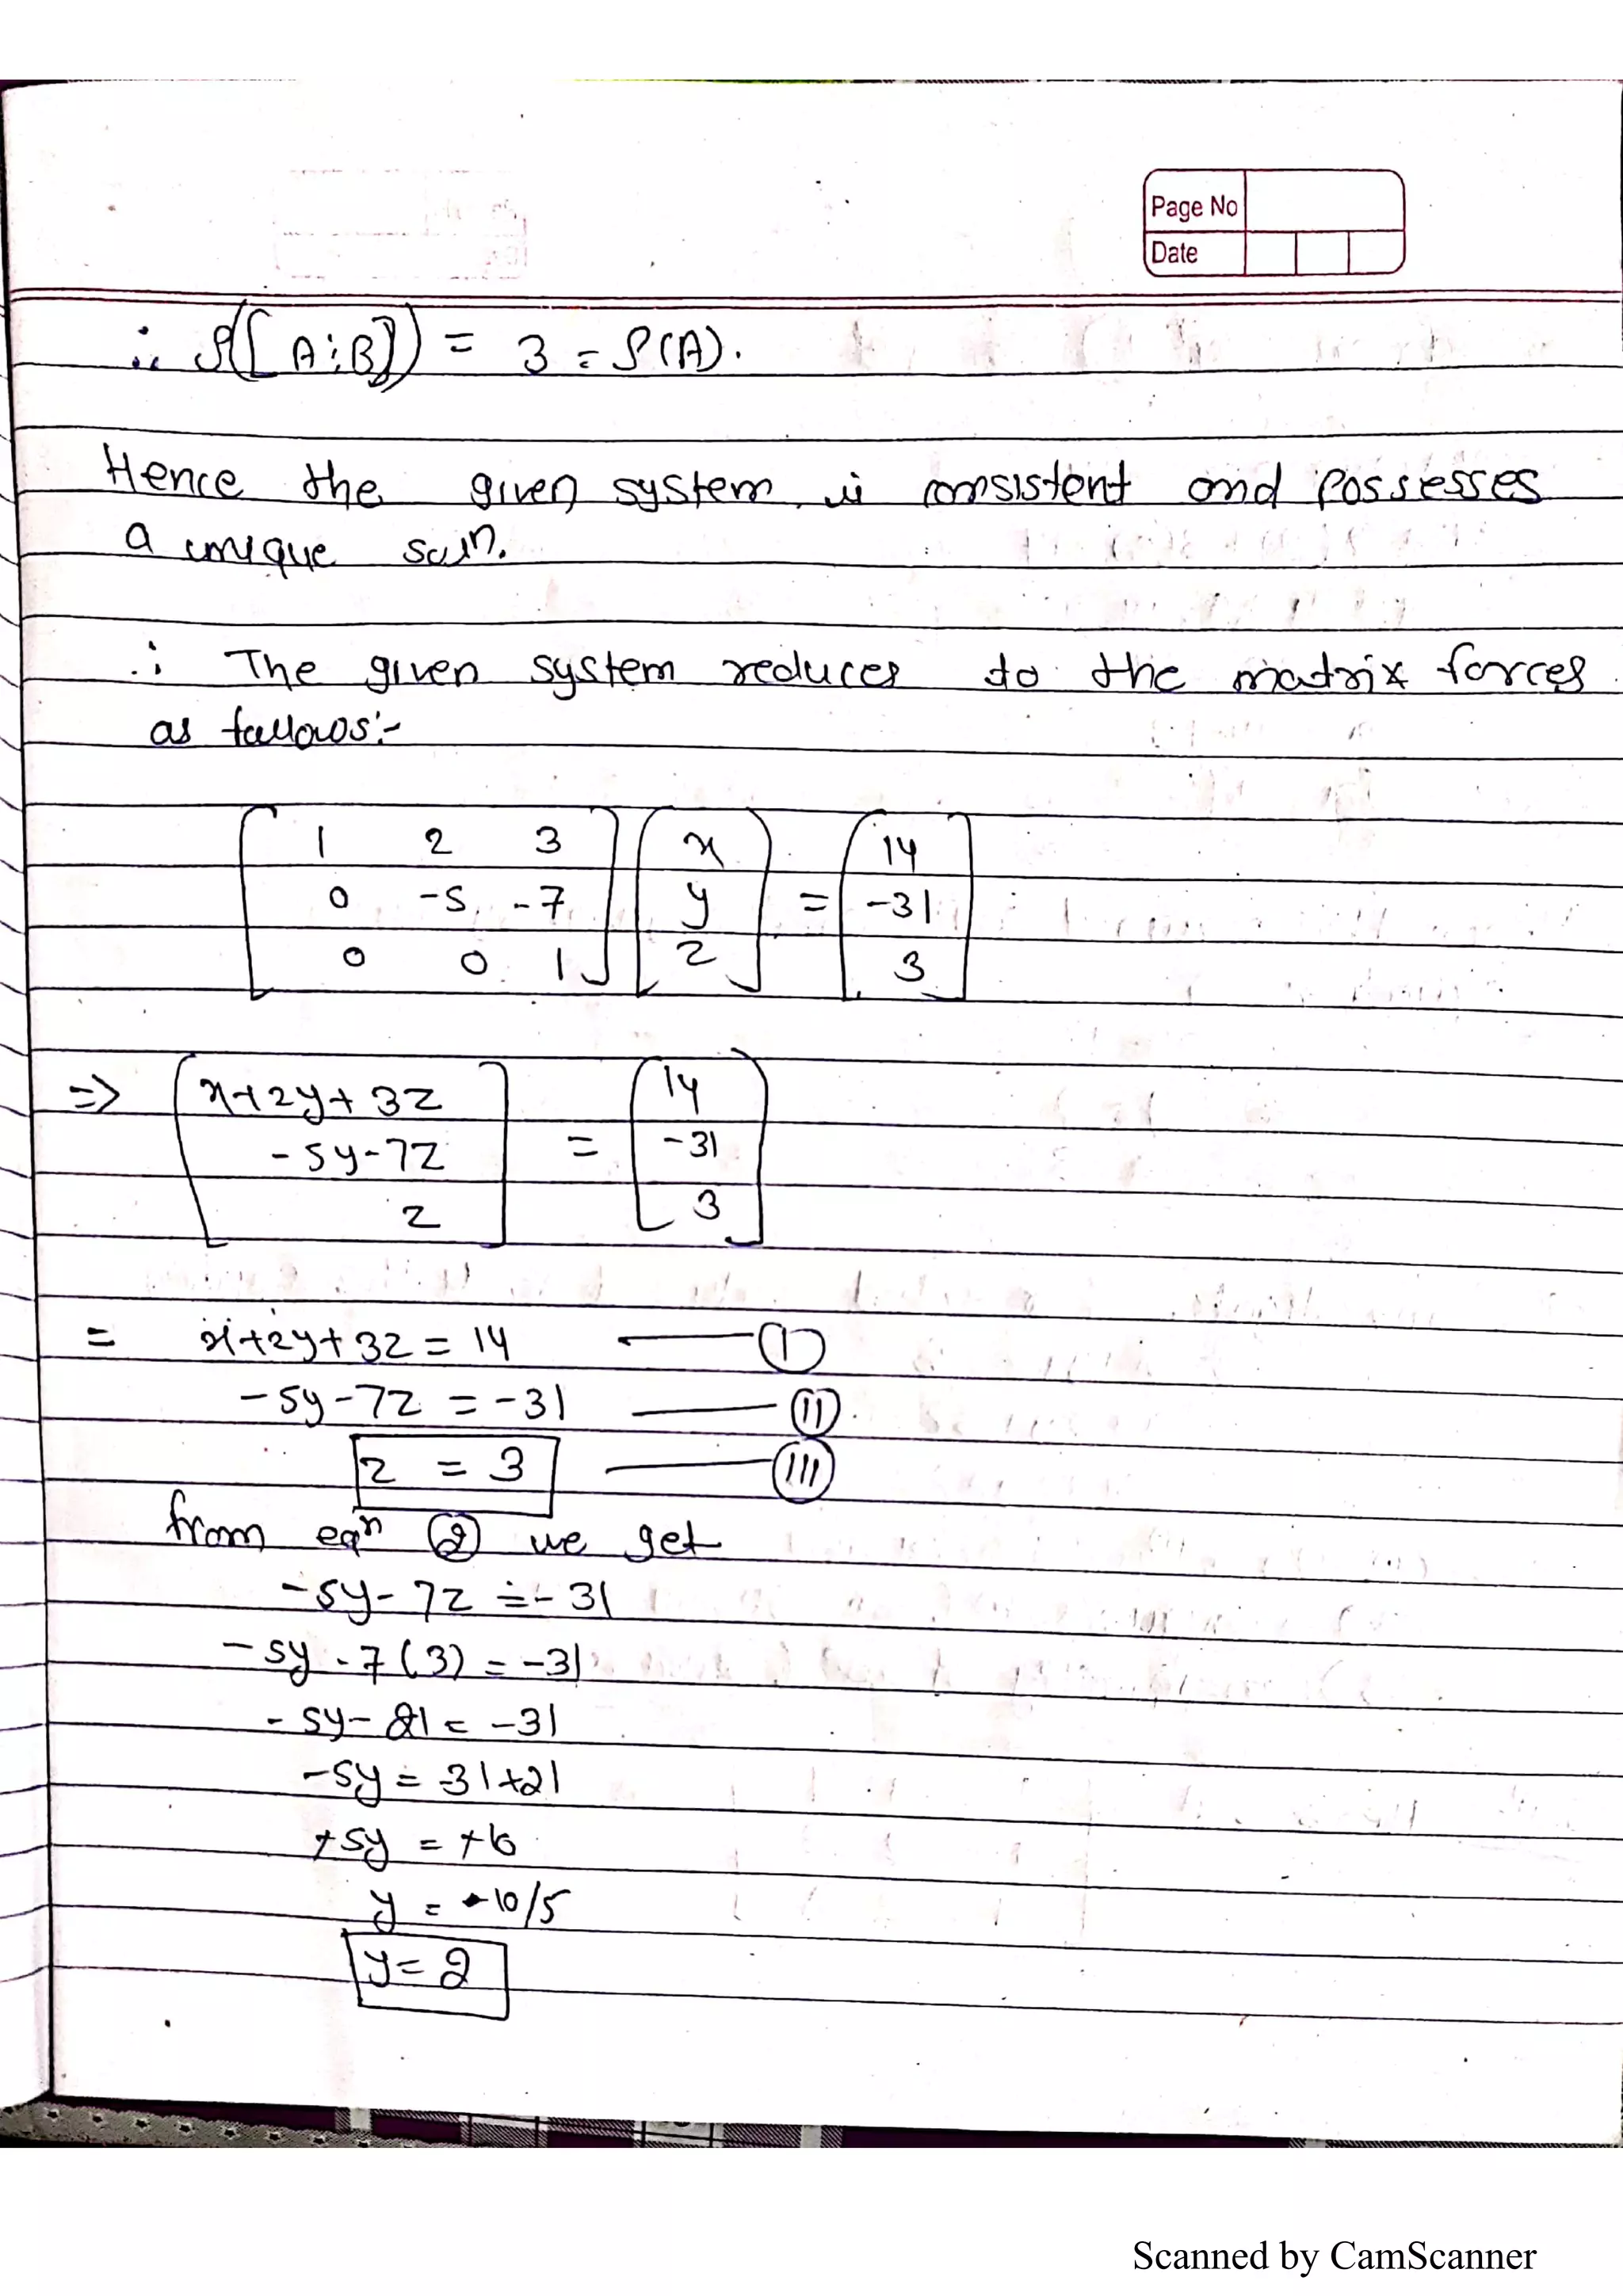 Page No
Date
∴ ρ([A:B]) = 3 = ρ(A).
Hence the given system is consistent and Possesses
a unique soln.
∴ The given system reduces to the matrix forces
as follows:-
[1 2 3] [x] [14]
[0 -5 -7] [y] = [-31]
[0 0 1] [z] [3]
=> [x+2y+3z] [14]
[-5y-7z] = [-31]
[z] [3]
= x+2y+3z = 14 —— (I)
-5y-7z = -31 —— (II)
z = 3 —— (III)
from eqn (2) we get
-5y-7z = -31
-5y-7(3) = -31
-5y-21 = -31
-5y = -31+21
+5y = +10
y = 10/5
y = 2
Scanned by CamScanner